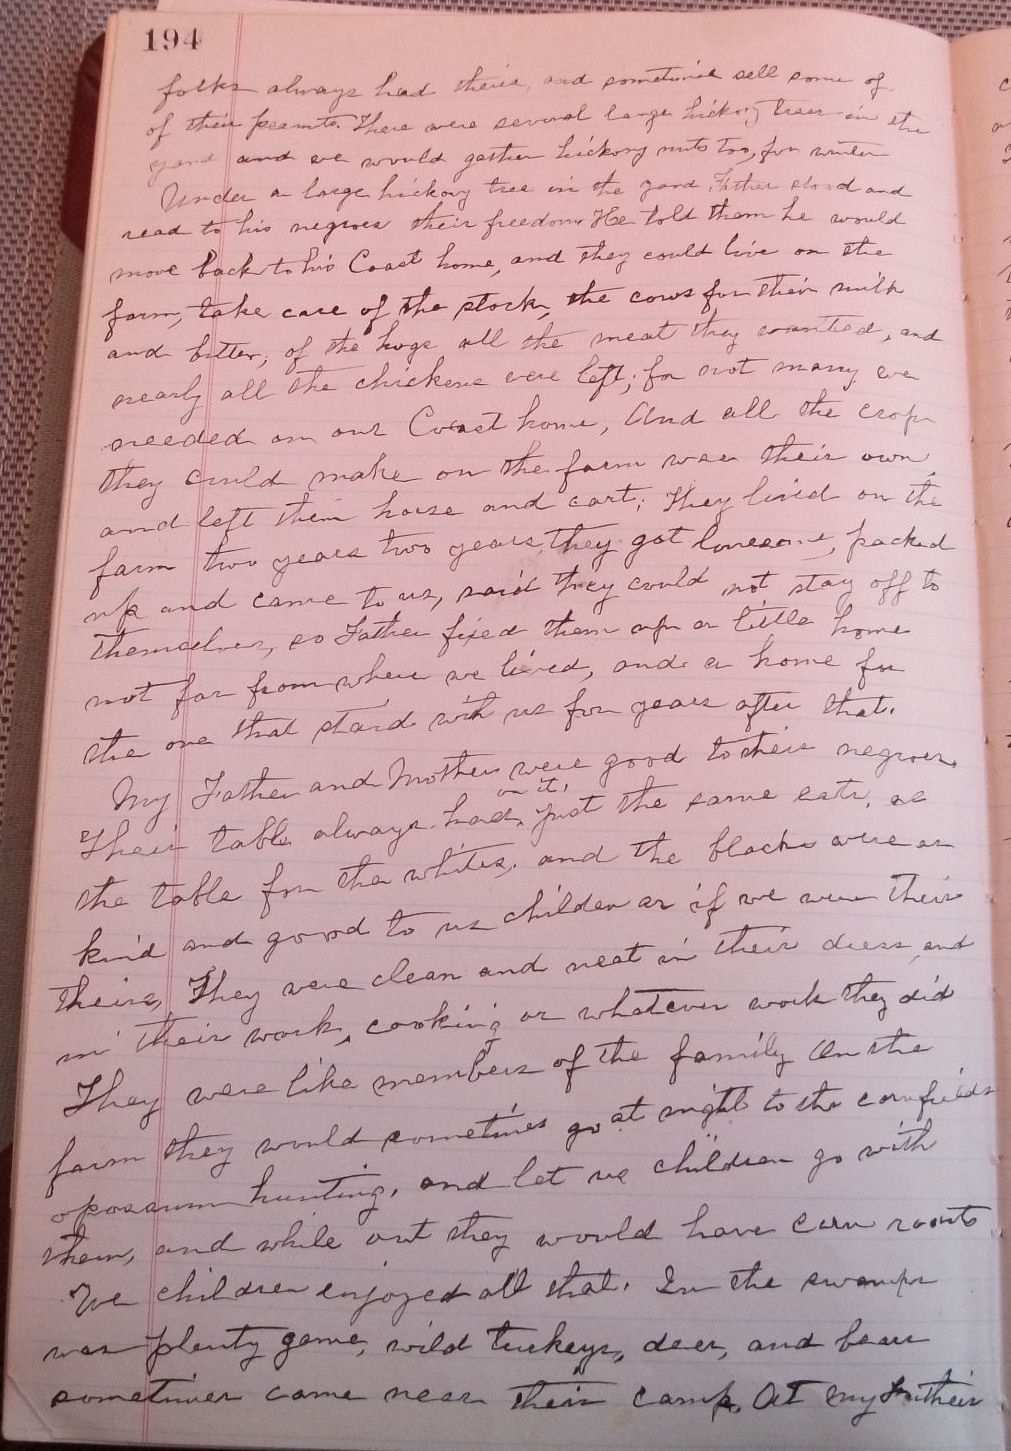 194
folks always had theirs, and sometimes sell some of
of their peanuts. There were several large hickory trees in the
yard and we would gather hickory nuts too, for winter
Under a large hickory tree in the yard Father stood and
read to his negroes their freedom. He told them he would
move back to his Coast home, and they could live on the
farm, take care of the stock, the cows for their milk
and butter, of the hogs all the meat they wanted, and
nearly all the chickens were left; for not many we
needed on our Coast home, And all the crop
they could make on the farm was their own,
and left them horse and cart; They lived on the
farm two years two years, they got lonesome, packed
up and came to us, said they could not stay off to
themselves, so Father fixed them up a little home
not far from where we lived, and a home for
the one that staid with us for years after that.
My Father and Mother were good to their negroes.
Their table always had on it, just the same eats, as
the table for the whites. and the blacks were as
kind and good to us children as if we were their
theirs, They were clean and neat in their dress, and
in their work, cooking or whatever work they did
They were like members of the family On the
farm they would sometimes go at night to the cornfields
opossum hunting, and let us children go with
them, and while out they would have corn roasts
We children enjoyed all that. In the swamps
was plenty game, wild turkeys, deer, and bears
sometimes came near their camp. At my